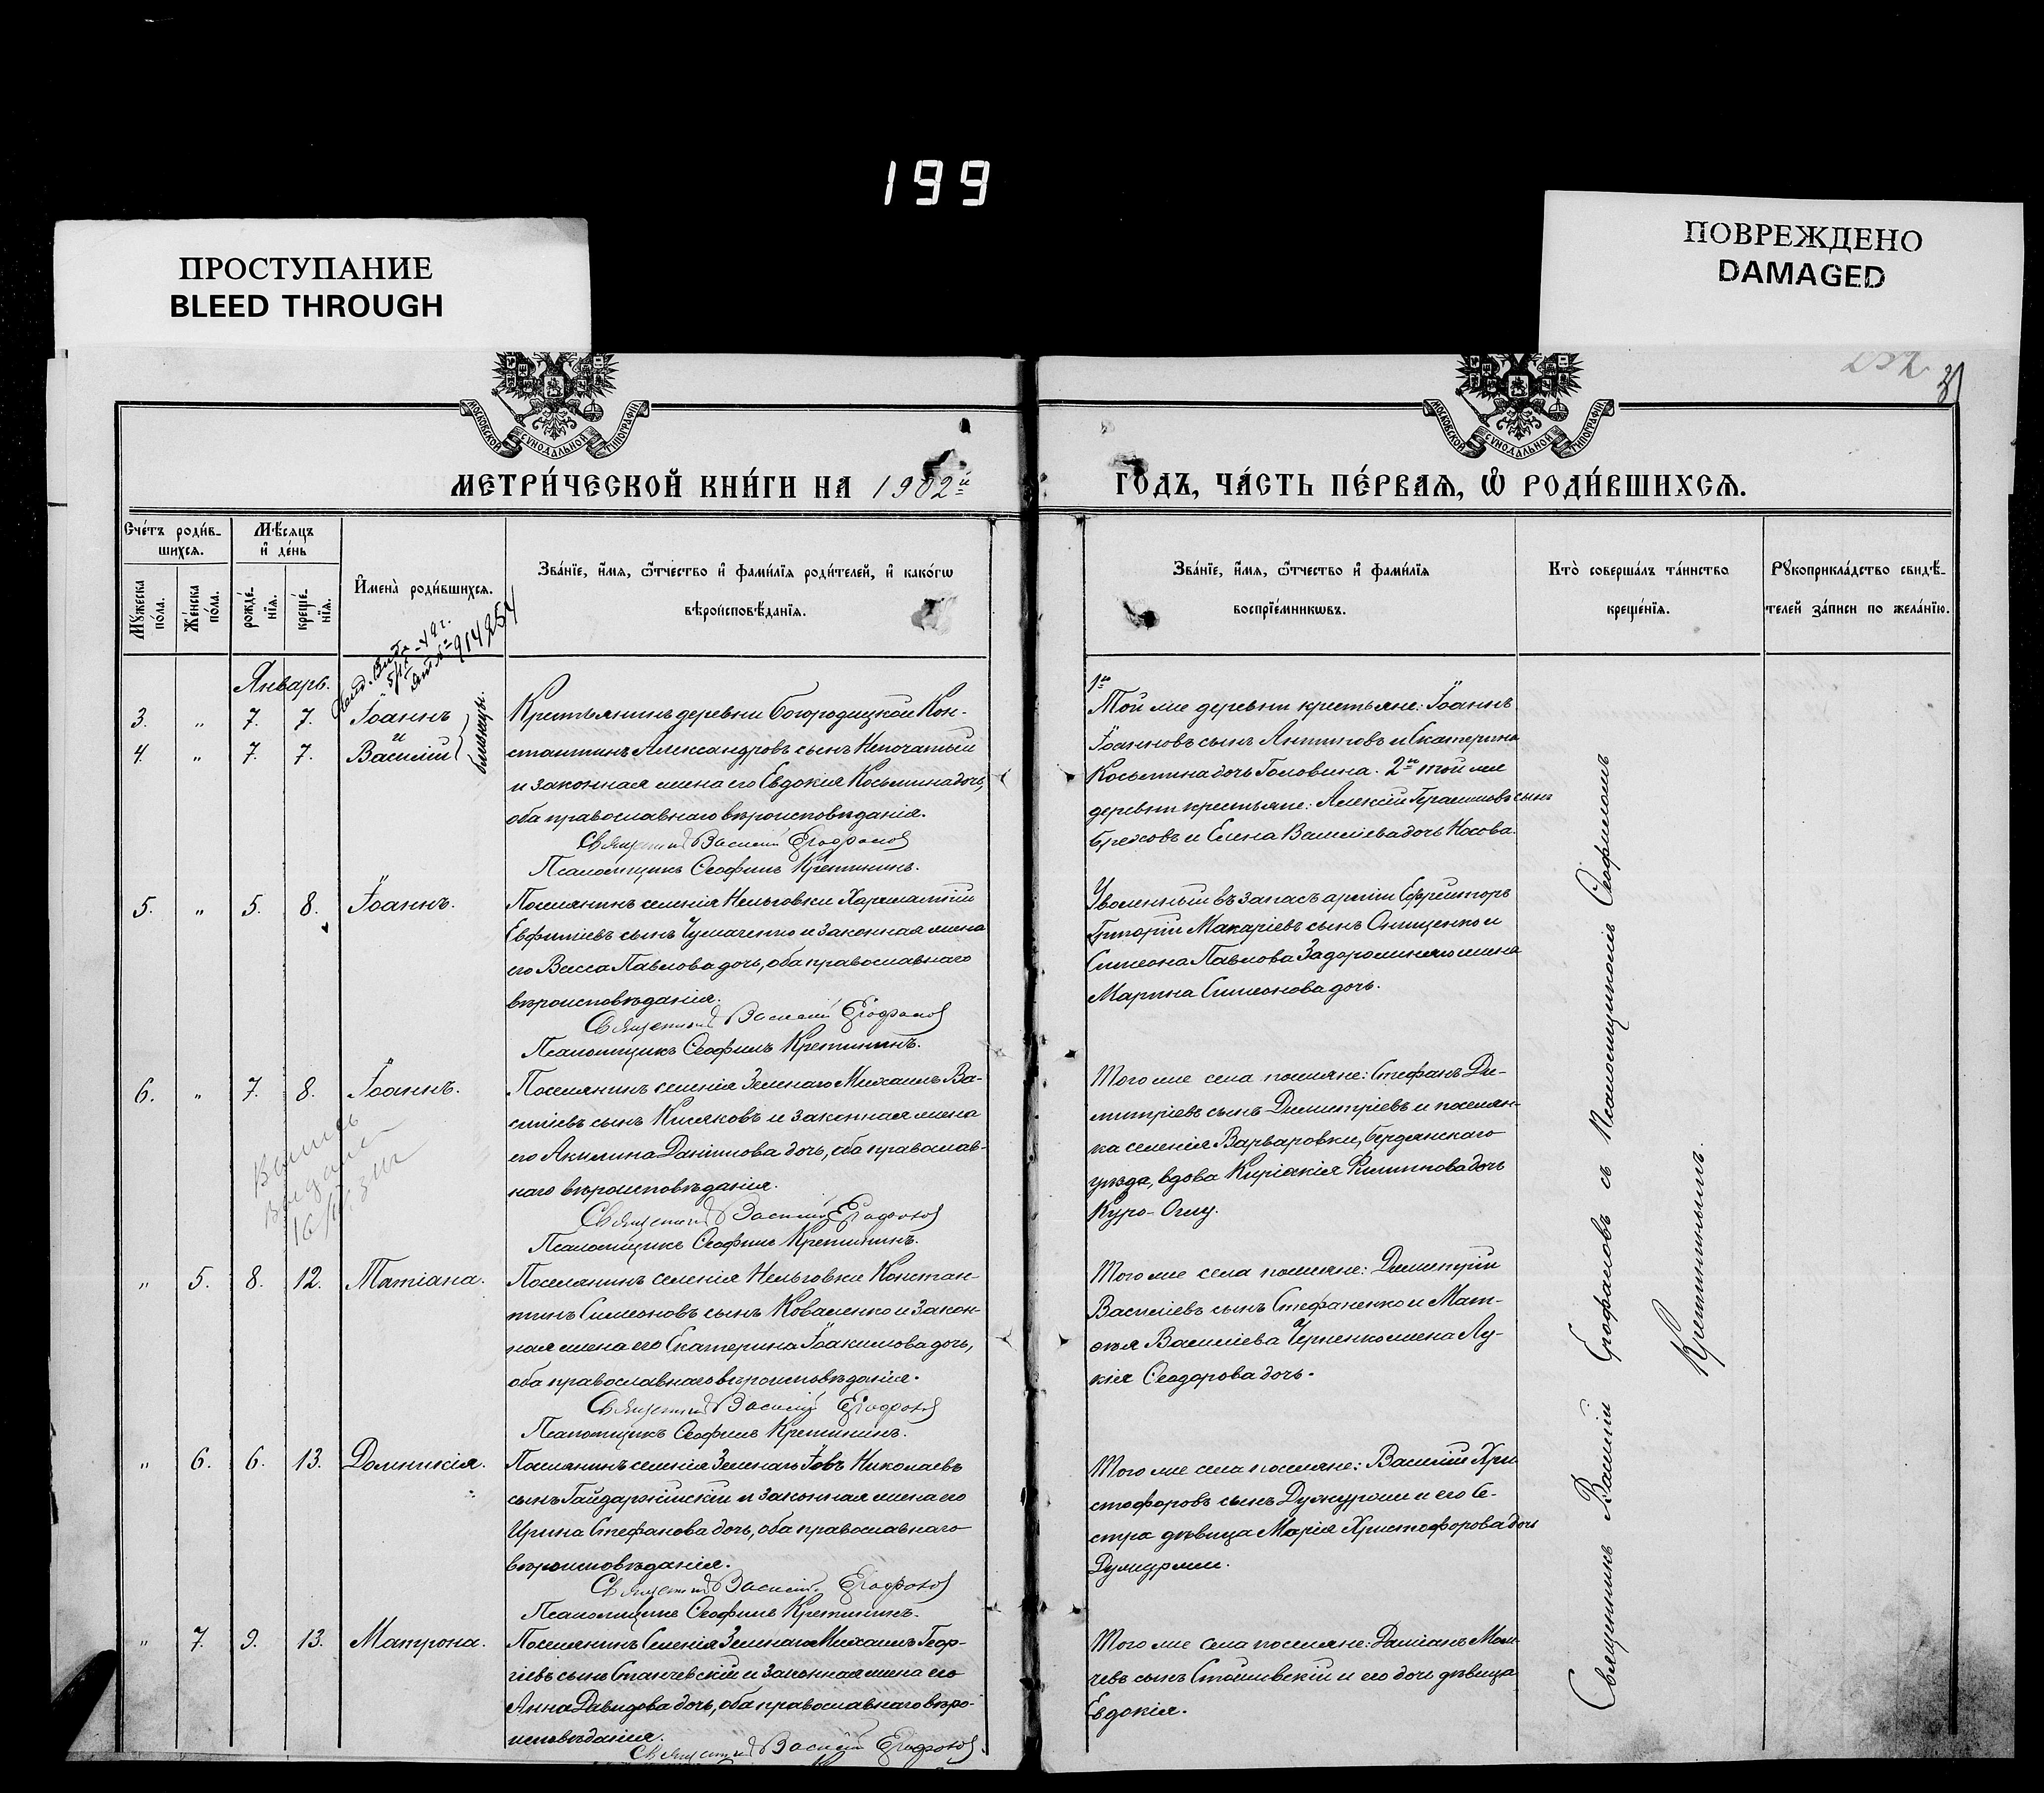 199
ПРОСТУПАНИЕ
BLEED THROUGH
ПОВРЕЖДЕНО
DAMAGED
МОСКОВСКОЙ СѴНОДАЛЬНОЙ ТИПОГРАФІИ
МОСКОВСКОЙ СѴНОДАЛЬНОЙ ТИПОГРАФІИ
МЕТРИ́ЧЕСКОЙ КНИ́ГИ НА 1902й
ГО́ДЪ, ЧА́СТЬ ПЕ́РВАѦ, Ѡ҆ РОДИ́ВШИХСѦ.
Сче́тъ роди́в-
шихсѧ.
Мꙋ́жеска по́ла.
Же́нска по́ла.
Мѣ́сяцъ
и҆ де́нь
рожде́нїѧ.
креще́нїѧ.
И҆мена̀ роди́вшихсѧ.
Зва́нїе, и҆́мѧ, ѻ҆́тчество и҆ фами́лїѧ роди́телей, и҆ како́гѡ
вѣроисповѣ́данїѧ.
Зва́нїе, и҆́мѧ, ѻ҆́тчество и҆ фами́лїѧ
воспрїе́мникѡвъ.
Кто̀ соверша́лъ та́инство
креще́нїѧ.
Рꙋкоприкла́дство свидѣ́-
телей за́писи по жела́нїю.
Январь.
3. " 7. 7. Іоаннъ
и
4. " 7. 7. Василій
близнецы.
Крестьянинъ деревни Богородицкой Кон-
стантинъ Александровъ сынъ Непочатый
и законная жена его Евдокія Косьмина дочь,
оба православнаго вѣроисповѣданія.
Священникъ Василій Ерофаловъ
Псаломщикъ Ѳеофилъ Кретининъ.
1е
Той же деревни крестьяне: Іоаннъ
Іоанновъ сынъ Антиповъ и Екатерина
Косьмина дочь Головина. 2е той же
деревни крестьяне: Алексій Герасимовъ сынъ
и Елена Василіева дочь Носова.
5. " 5. 8. Іоаннъ.
Поселянинъ селенія Нельговки Харлампій
Евфиміевъ сынъ Чумаченко и законная жена
его Васса Павлова дочь, оба православнаго
вѣроисповѣданія.
Священникъ Василій Ерофаловъ
Псаломщикъ Ѳеофилъ Кретининъ.
Уволенный въ запасъ арміи Ефрейторъ
Григорій Макаріевъ сынъ Онищенко и
Симеона Павлова Задорожняго жена
Марина Симеонова дочь.
6. " 7. 8. Іоаннъ.
Поселянинъ селенія Зеленаго Михаилъ Ва-
силіевъ сынъ Кисяковъ и законная жена
его Акилина Даніилова дочь, оба православ-
наго вѣроисповѣданія.
Священникъ Василій Ерофаловъ
Псаломщикъ Ѳеофилъ Кретининъ.
Того же села поселяне: Стефанъ Ди-
митріевъ сынъ Димитріевъ и поселян-
ка селенія Варваровки, Бердянскаго
уѣзда, вдова Киріакія дочь
Куро-Оглу.
" 5. 8. 12. Татіана.
Поселянинъ селенія Нельговки Констан-
тинъ Симеоновъ сынъ Коваленко и закон-
ная жена его Екатерина Іоакимова дочь,
оба православнаго вѣроисповѣданія.
Священникъ Василій Ерофаловъ
Псаломщикъ Ѳеофилъ Кретининъ.
Того же села поселяне: Димитрій
Василіевъ сынъ Стефаненко и Мат-
ѳея Василіева Черненко жена Лу-
кія Ѳеодорова дочь.
" 6. 6. 13. Домникія.
Поселянинъ селенія Зеленаго Іовъ Николаевъ
сынъ Гайдаржійскій и законная жена его
Ирина Стефанова дочь, оба православнаго
вѣроисповѣданія.
Священникъ Василій Ерофаловъ
Псаломщикъ Ѳеофилъ Кретининъ.
Того же села поселяне: Василій Хри
стофоровъ сынъ и его се-
стра дѣвица Марія Христофорова дочь
" 7. 9. 13. Матрона.
Поселянинъ Селенія Зеленаго Михаилъ Геор-
гіевъ сынъ Станчевскій и законная жена его
Анна Давидова дочь, оба православнаго вѣро-
исповѣданія.
Священникъ Василій Ерофаловъ
Того же села поселяне: Даміанъ
сынъ и его дочь дѣвица
Евдокія.
Священникъ Василій Ерофаловъ съ Псаломщикомъ Ѳеофиломъ
Кретининымъ.